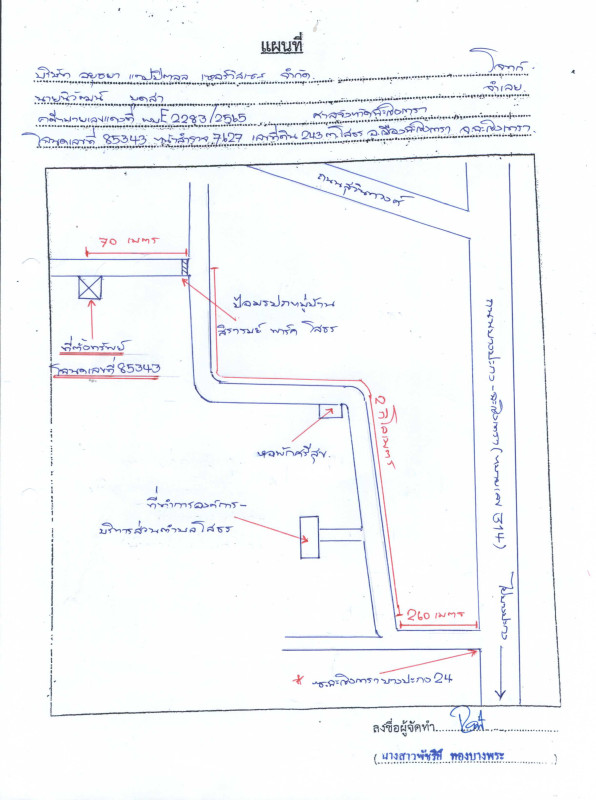 แผนที่
บริษัท อยุธยา แคปปิตอล เซอร์วิสเซส จำกัด. โจทก์.
นายนิวัฒน์ จำเลย.
คดีหมายเลขแดงที่ ผบE 2283/2565 ศาลจังหวัดฉะเชิงเทรา
โฉนดเลขที่ 85343 หน้าสำรวจ 7627 เลขที่ดิน 243 ต.โสธร อ.เมืองฉะเชิงเทรา จ.ฉะเชิงเทรา.
ถนนสุวินทวงศ์
70 เมตร
ป้อมรปภ.หมู่บ้าน
สิรารมย์ พาร์ค โสธร
ที่ตั้งทรัพย์
โฉนดเลขที่ 85343
2 กิโลเมตร
ถนนบางปะกง-ฉะเชิงเทรา (หมายเลข 314)
หอพักศรีสุข.
ที่ทำการองค์การ-
บริหารส่วนตำบลโสธร
260 เมตร
ไปบางปะกง
* ซ.ฉะเชิงเทรา-บางปะกง 24
ลงชื่อผู้จัดทำ
( นางสาวพัชรีพี ทองบางพระ )